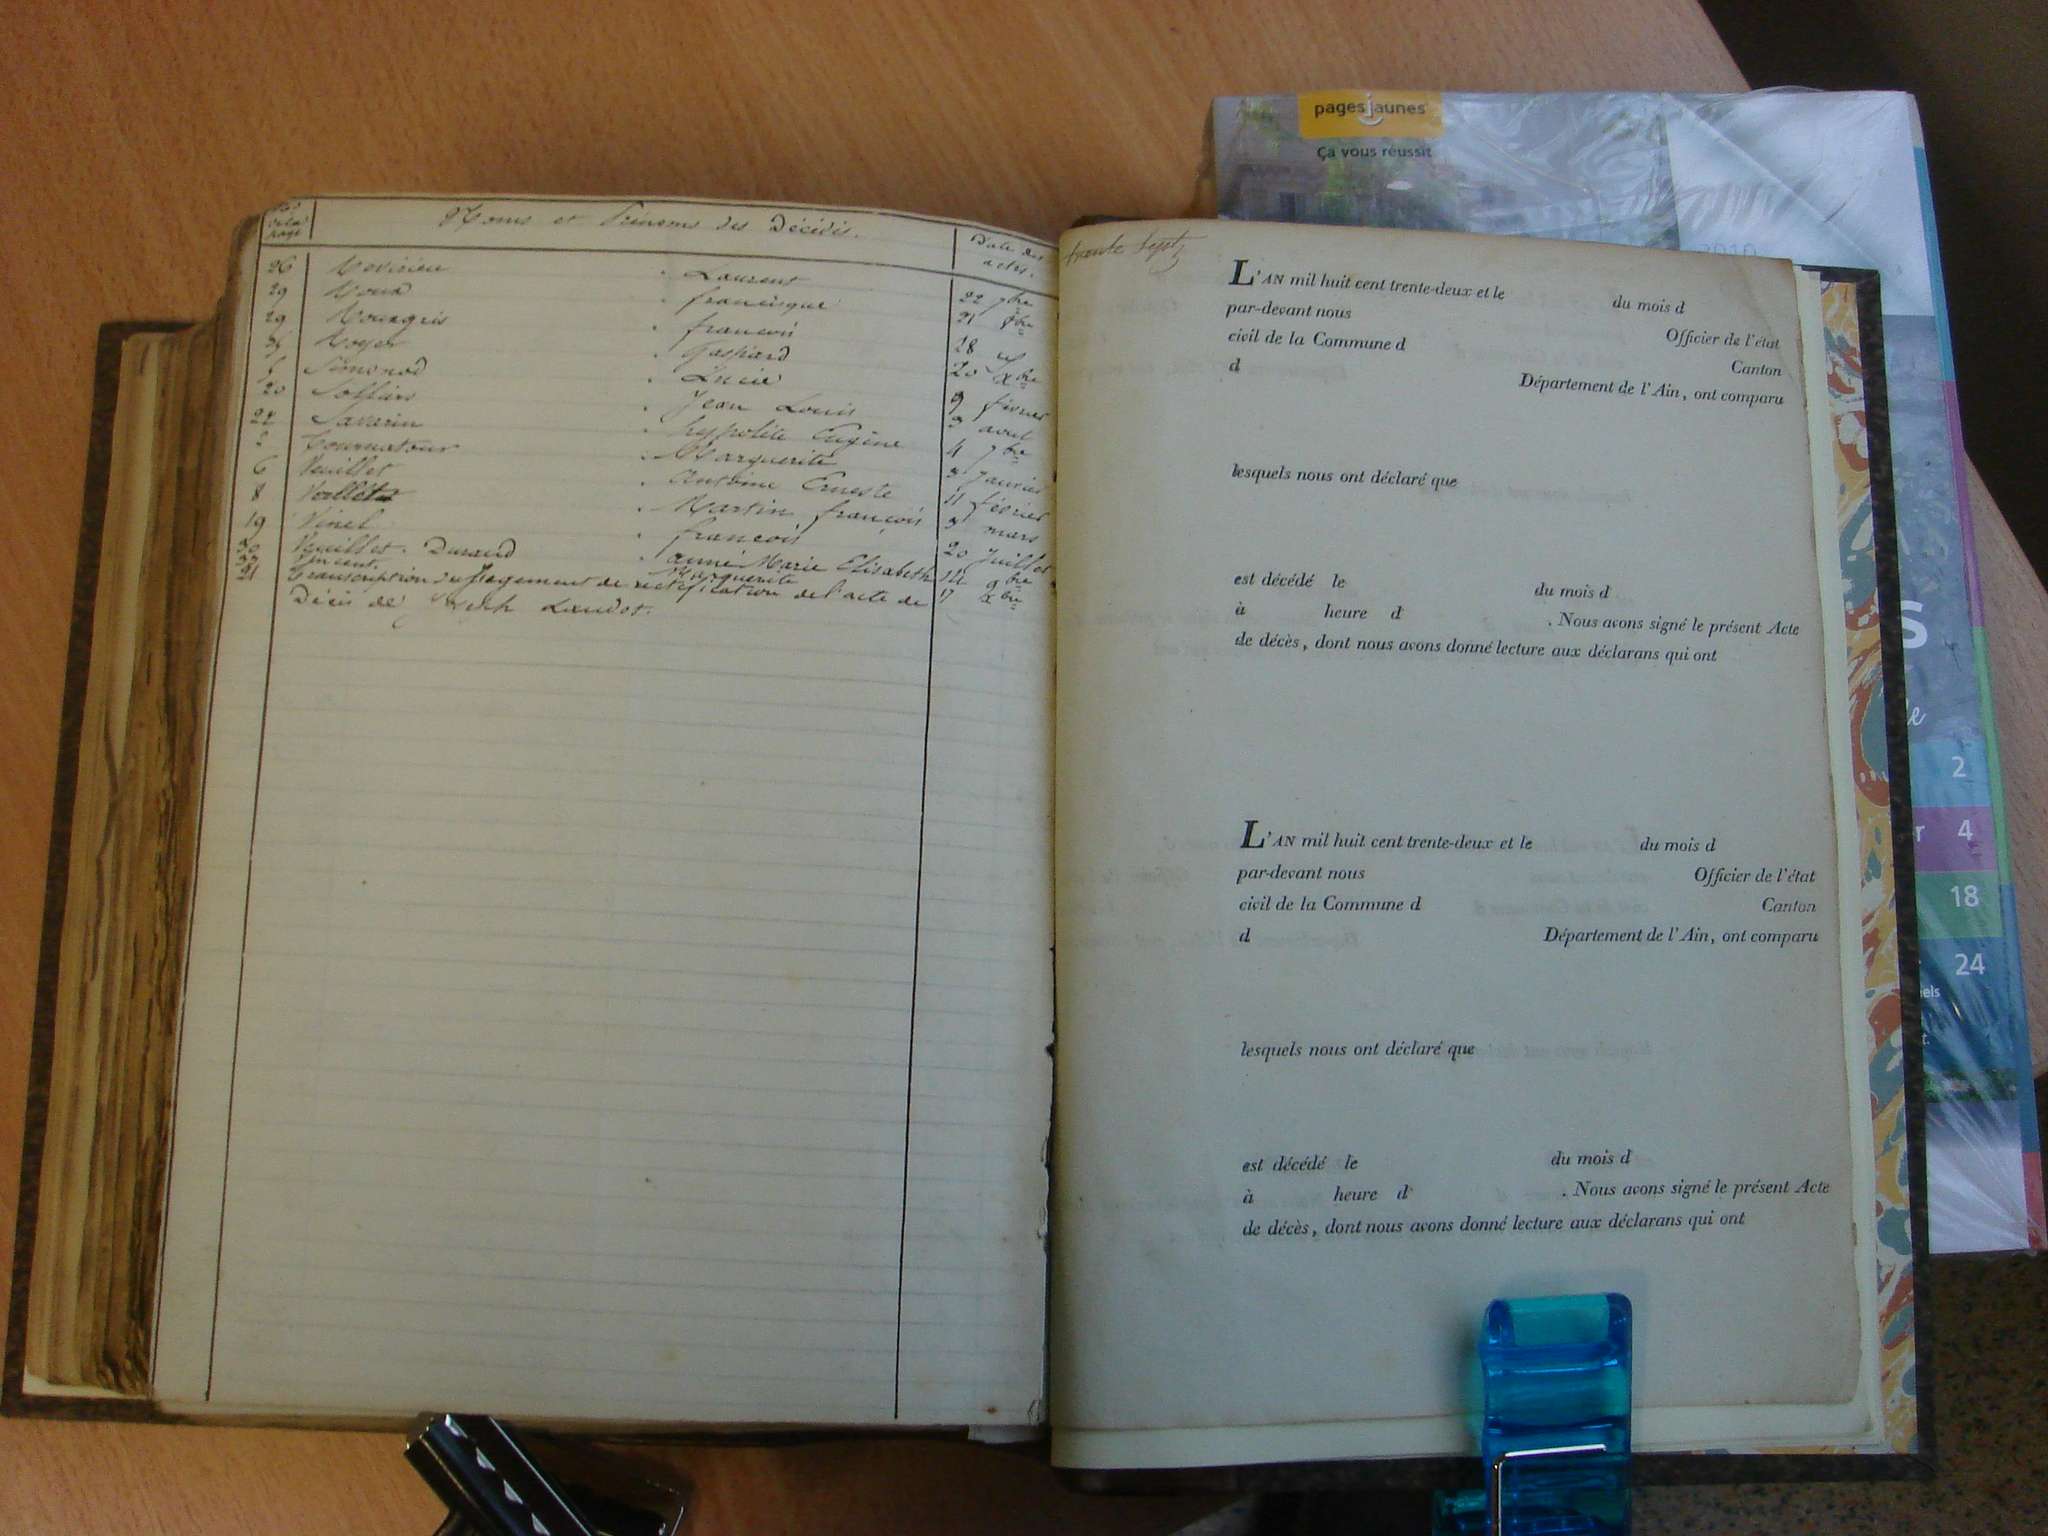 de la page
Noms et Prénoms des Décédés.
Date des actes.
26 Laurent 22 7bre
29 francisque 21 8bre
29 françois 28
Gaspard 20 Xbre
Simonod Lucie 9 février
20 Jean Louis 3 avril
22 Savarin hyppolite Eugène 4 7bre
2 Tournatour Marguerite 3 Janvier
6 Vuillet Antoine Erneste 11 février
8 Martin françois 3 mars
19 Vinel françois 20 Juillet
30 Vuillet. Durand anne Marie Elisabeth 14 9bre
Vincent. Marguerite 17 Xbre
21 Transcription du Jugement de rectification de l'acte de
Décès de Joseph Landot.
trente Sept
L'AN mil huit cent trente-deux et le du mois d
par-devant nous Officier de l'état
civil de la Commune d Canton
d Département de l'Ain, ont comparu
lesquels nous ont déclaré que
est décédé le du mois d
à heure d . Nous avons signé le présent Acte
de décès, dont nous avons donné lecture aux déclarans qui ont
L'AN mil huit cent trente-deux et le du mois d
par-devant nous Officier de l'état
civil de la Commune d Canton
d Département de l'Ain, ont comparu
lesquels nous ont déclaré que
est décédé le du mois d
à heure d . Nous avons signé le présent Acte
de décès, dont nous avons donné lecture aux déclarans qui ont
pages jaunes
Ça vous réussit
2010
2
4
18
24